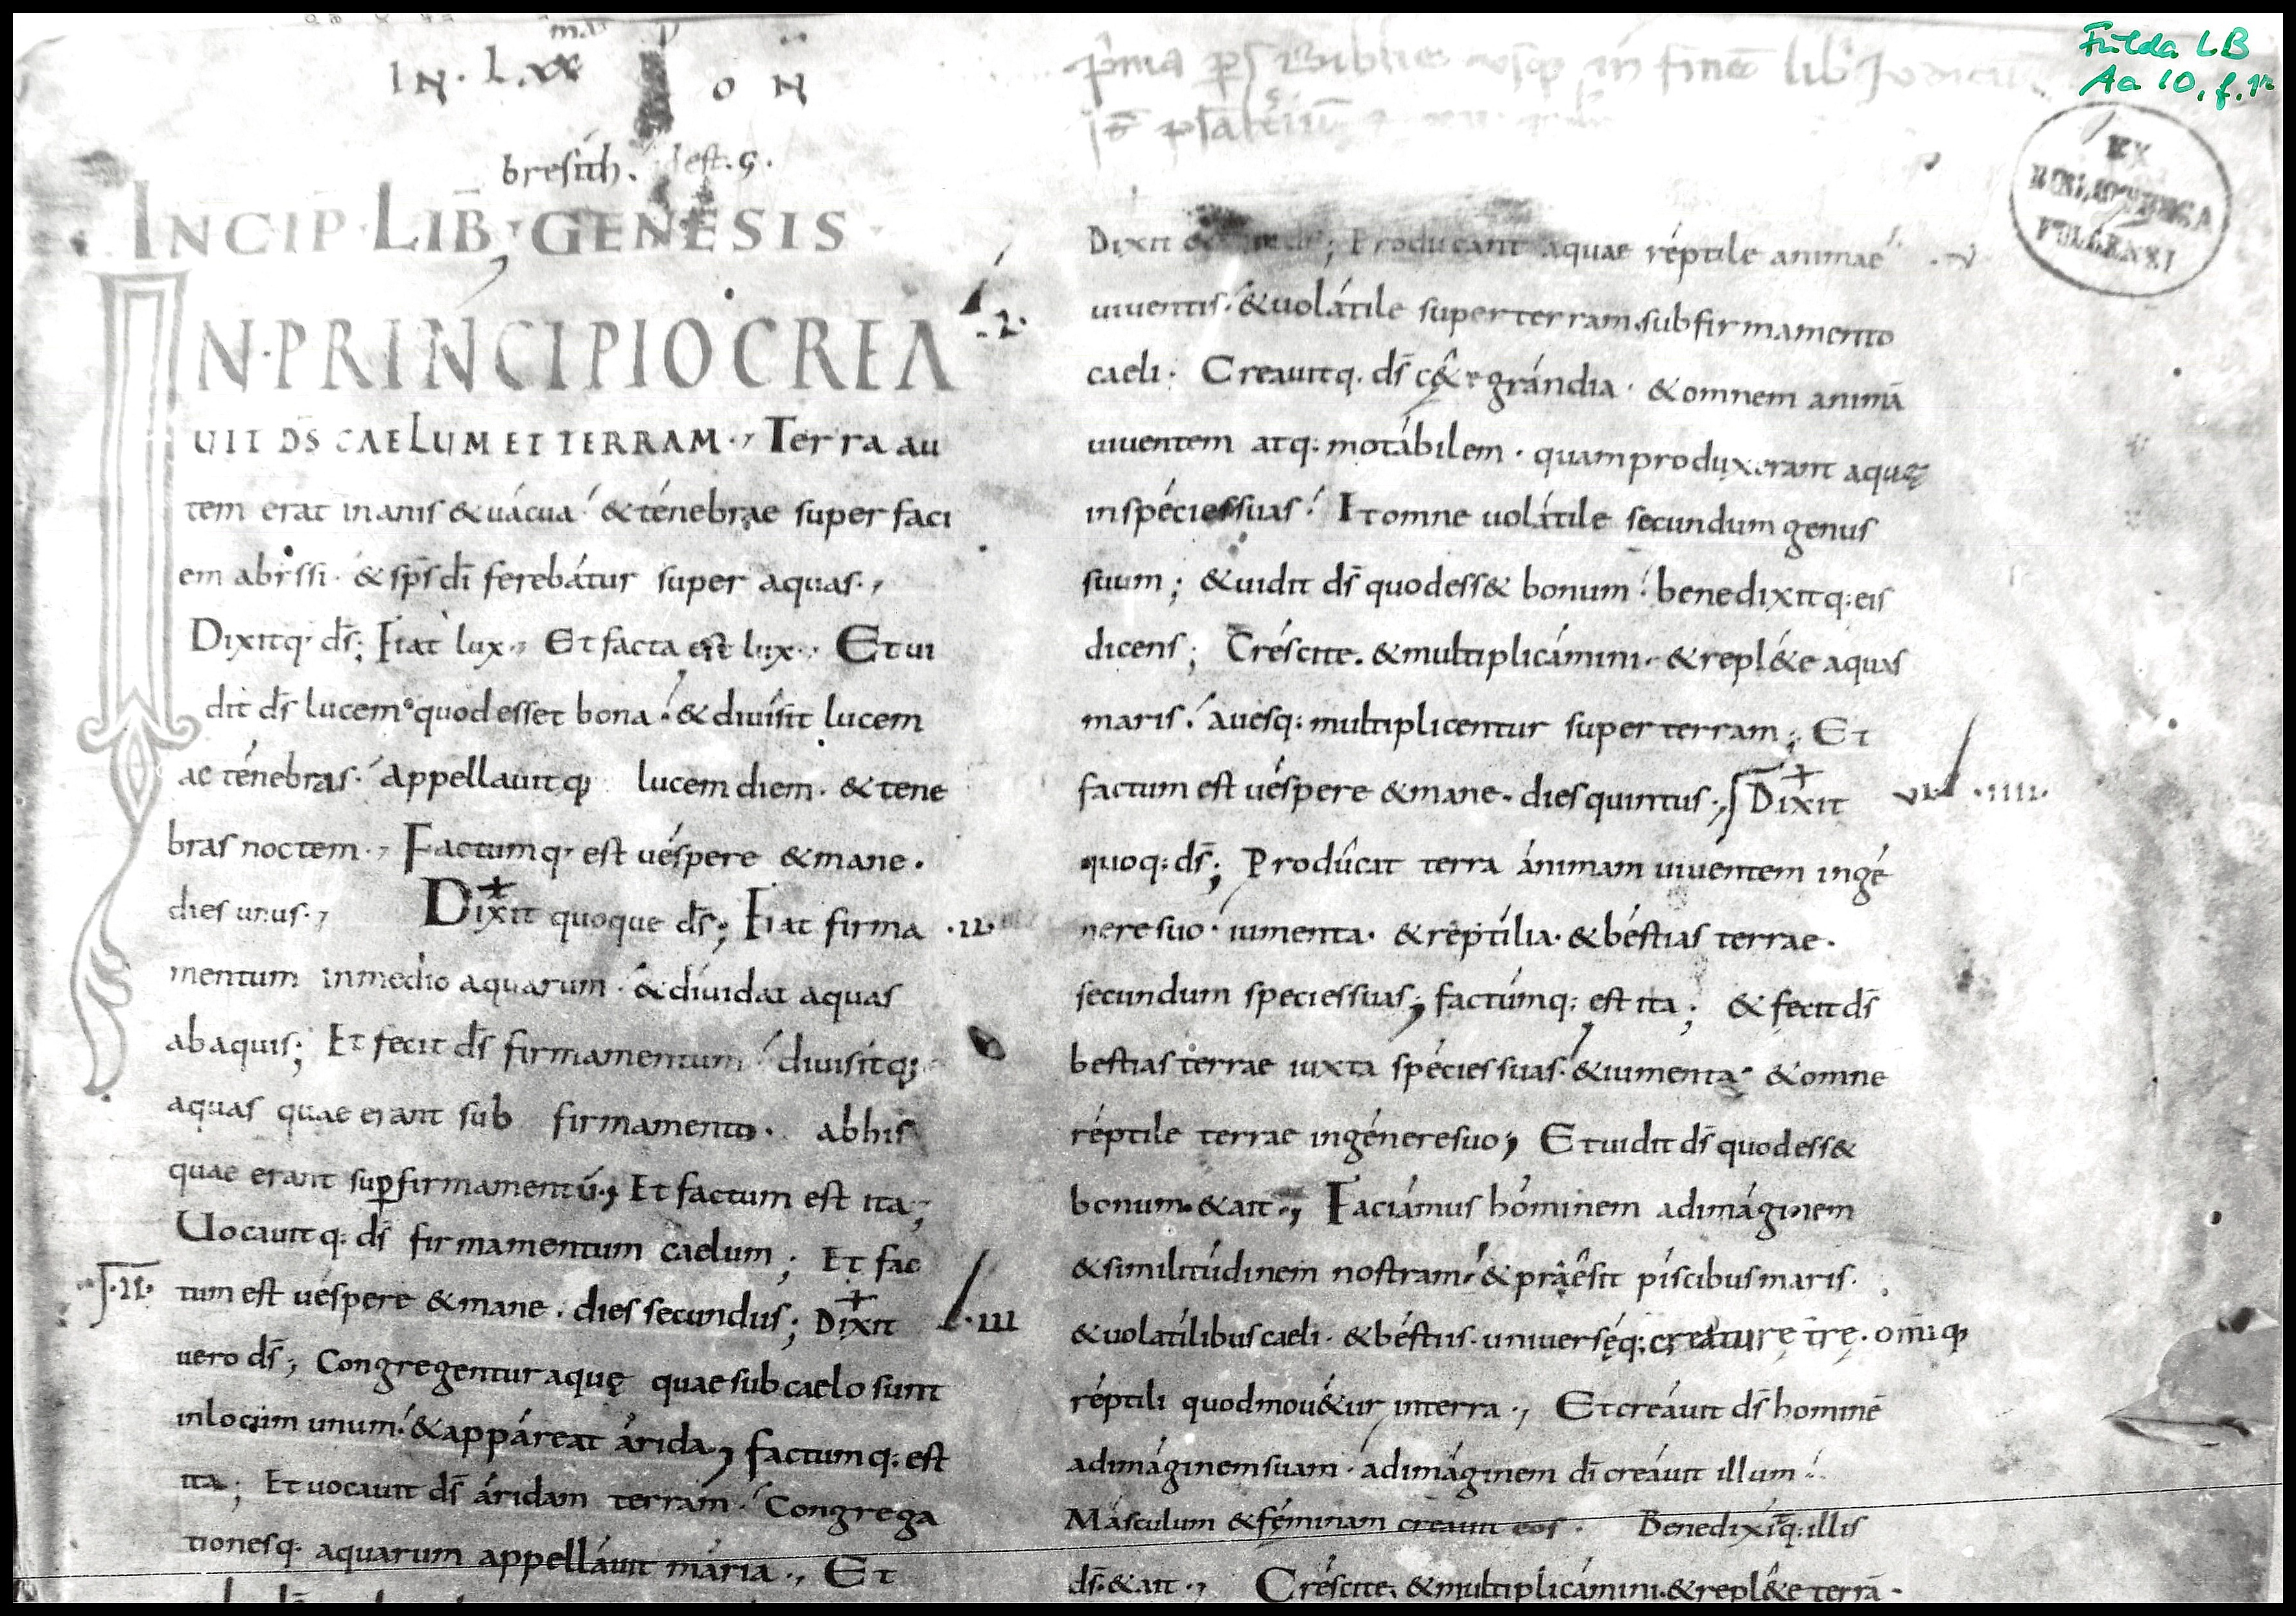 IN · Lxx
O N
bresith. idest. G.
INCIP · LIB · GENESIS
IN · PRINCIPIO CREA
UIT D̄S CAELUM ET TERRAM ·, Terra au
tem erat inanis & uácua & ténebrae super faci
em abissi · & sp̄s dī ferebátur super aquas ·,
Dixitq· ds̄; Fiat lux ·, Et facta est lux ·, Et ui
dit ds̄ lucem quod esset bona · & diuísit lucem
ac ténebras · appellauitq; lucem diem · & tene
bras noctem ·, Factumq· est uéspere & mane ·
dies unus ·, Dixit quoque ds̄; Fiat firma · II ·
mentum in medio aquarum · & díuidat aquas
ab aquis; Et fecit ds̄ firmamentum diuisitq;
aquas quae erant sub firmamento · ab his
quae erant sup̱ firmamentū ·, Et factum est ita;
Uocauitq: ds̄ firmamentum caelum; Et fac
· II · tum est uéspere & mane · dies secundus; Dixit · III
uero ds̄; Congregentur aquę quae sub caelo sunt
in locum unum · & appáreat árida, factumq: est
ita; Et uocauit ds̄ áridam terram · Congrega
tionesq· aquarum appelláuit mária ·, Et
Fulda LB
Aa 10, f. 1r
EX
BIBLIOTHECA
FULDENSI
prima ps Biblie usq in finē lib Iudicū
Dixit ds̄; Producant aquae réptile animae · V
uiuentis · & uolátile super terram sub firmamento
caeli · Creauitq· ds̄ c&e grándia · & omnem animā
uiuentem atq: motábilem · quam produxerant aquę
in spécies suas · Et omne uolátile secundum genus
suum; & uidit ds̄ quod ess& bonum · benedixitq: eis
dicens; Créscite · & multiplicámini · & repl&e aquas
maris · auesq: multiplicentur super terram; Et
factum est uéspere & mane · dies quintus ·, Dixit VI · IIII ·
quoq: ds̄; Prodûcat terra ánimam uiuentem in gé
nere suo · iumenta · & réptília · & béstias terrae ·
secundum species suas, factúmq: est ita; & fecit ds̄
bestias terrae iuxta spécies suas · & iumenta · & omne
réptile terrae in génere suo; Et uidit ds̄ quod ess&
bonum · & ait ·, Faciámus hóminem ad imáginem
& similitúdinem nostram · & práêsit píscibus maris ·
& uolatílibus caeli · & béstiis · uniuerséq: creaturę tr̄ę · omīq;
réptili quod mou&ur in terra ·, Et creáuit ds̄ hominē
ad imáginem suam · ad imáginem dī creáuit illum
Másculum & féminam creauit eos · Benedixitq: illis
ds̄ · & ait ·, Créscite · & multiplicámini · & repl&e terrā ·